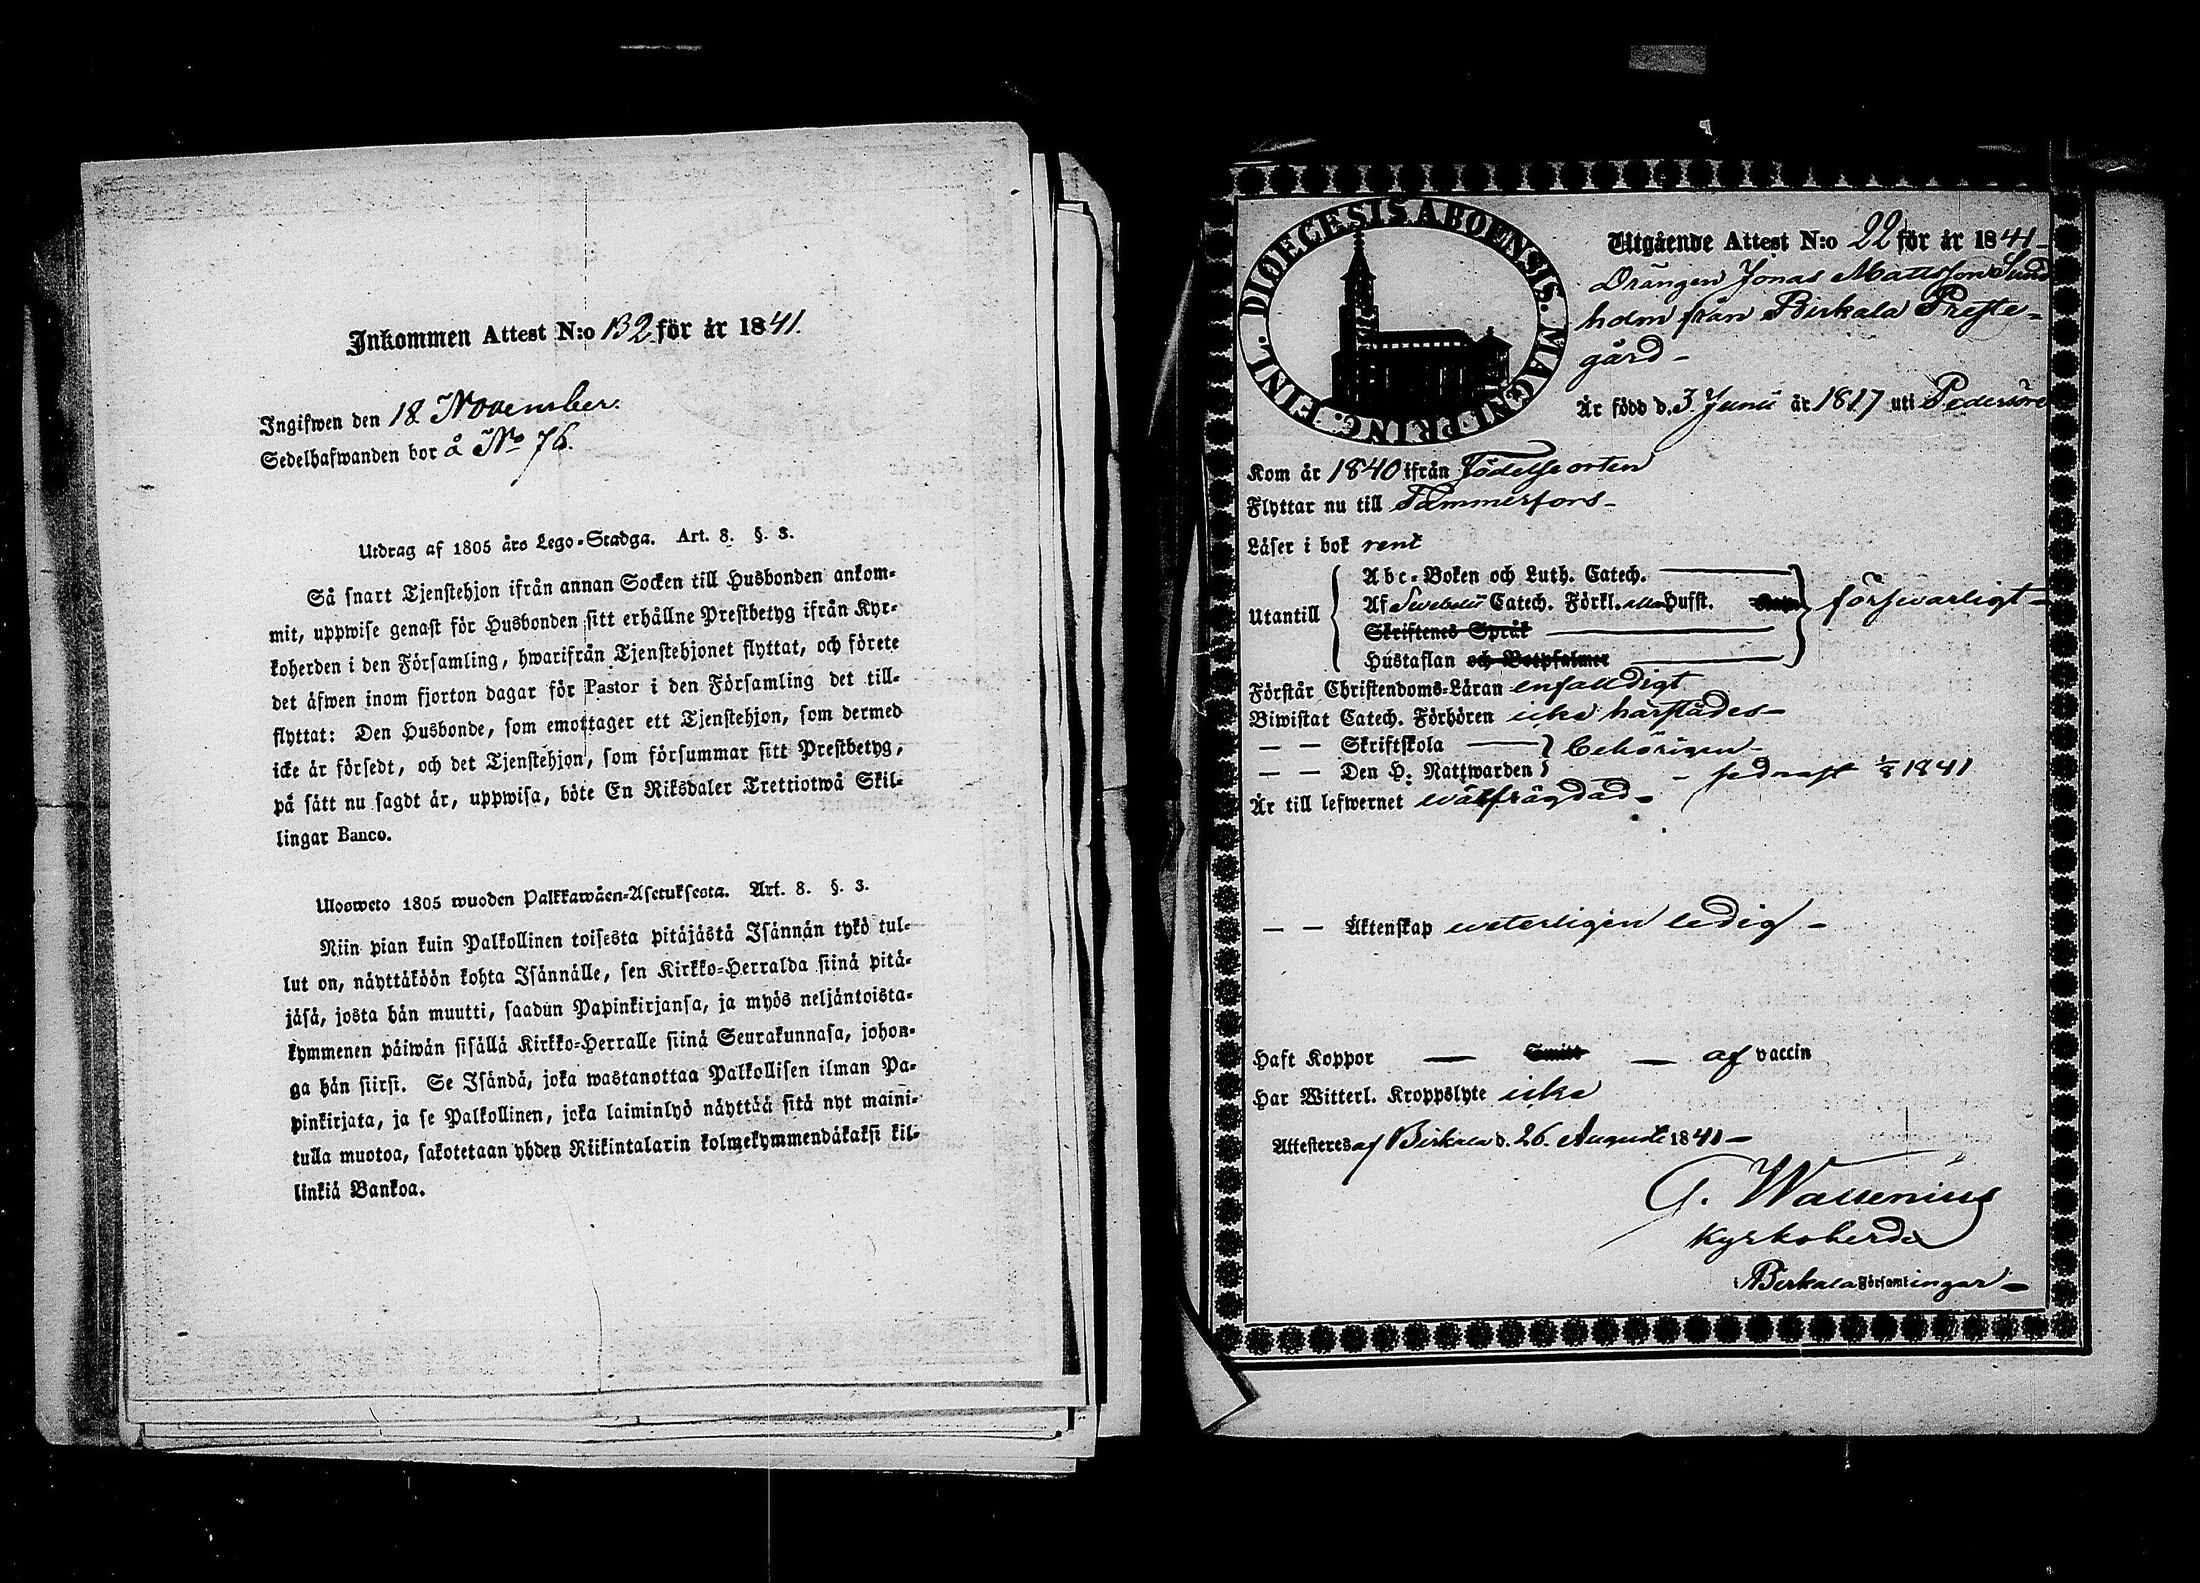 Inkommen Attest N:o 132 för år 1841.
Ingifwen den 18 November.
Sedelhafwanden bor å No 76.
Utdrag af 1805 års Lego-Stadga. Art. 8. §. 3.
Så snart Tjenstehjon ifrån annan Socken till Husbonden ankom-
mit, uppwise genast för Husbonden sitt erhållne Prestbetyg ifrån Kyr-
koherden i den Församling, hwarifrån Tjenstehjonet flyttat, och förete
det äfwen inom fjorton dagar för Pastor i den Församling det till-
flyttat: Den Husbonde, som emottager ett Tjenstehjon, som dermed
icke är försedt, och det Tjenstehjon, som försummar sitt Prestbetyg,
på sätt nu sagdt är, uppwisa, böte En Riksdaler Trettiotwå Skil-
lingar Banco.
Ulosweto 1805 wuoden Palkkawäen-Asetuksesta. Art. 8. §. 3.
Niin pian kuin Palkollinen toisesta pitäjästä Isännän tykö tul-
lut on, näyttäköön kohta Isännälle, sen Kirkko-Herralda siinä pitä-
jäsä, josta hän muutti, saadun Papinkirjansa, ja myös neljäntoista-
kymmenen päiwän sisällä Kirkko-Herralle siinä Seurakunnasa, johon-
ga hän siirsi. Se Isändä, joka wastanottaa Palkollisen ilman Pa-
pinkirjata, ja se Palkollinen, joka laiminlyö näyttää sitä nyt maini-
tulla muotoa, sakotetaan yhden Riikintalarin kolmekymmendäkaksi kil-
linkiä Bankoa.
DIOECESIS ABOENSIS. MAGNI PRINC. FINL.
Utgående Attest N:o 22 för år 1841-
Drängen Jonas Mattsson Sund
holm från Birkala Preste-
gård-
Är född d. 3 Junii år 1817 uti Pedersöre
Kom år 1840 ifrån Födelseorten
Flyttar nu till Tammerfors-
Läser i bok rent
Utantill
Abc-Boken och Luth. Catech.
Af Swebelii Catech. Förkl. Hufst.
Skriftenes Språk
Hustaflan och Botpsalmer
försvarligt-
Förstår Christendoms-Läran enfalldigt
Biwistat Catech. Förhören icke härstädes-
— — Skriftskola
— — Den H. Nattwarden
behörigen-
- sednast 1/8 1841
Är till lefwernet wälfrägdad-
— — Äktenskap weterligen ledig-
Haft Koppor — Smitt — af vaccin
Har Witterl. Kroppslyte icke
Attesteres af Birkala d. 26. Augusti 1841-
G. Wallenius
Kyrkoherde
i Birkala Församlingar-